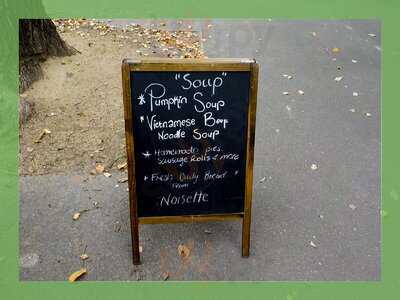 "Soup"
* Pumpkin Soup
* Vietnamese Beef
Noodle Soup
* Homemade pies,
Sausage Rolls + more
* Fresh Daily Bread "
From
Noisette